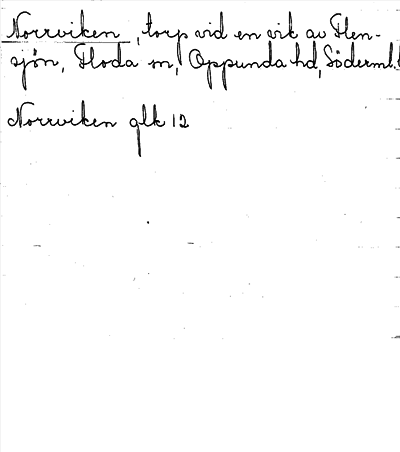 Norrviken, torp vid en vik av Flen-
sjön, Floda sn, Oppunda hd, Söderml.
Norrviken glk 12